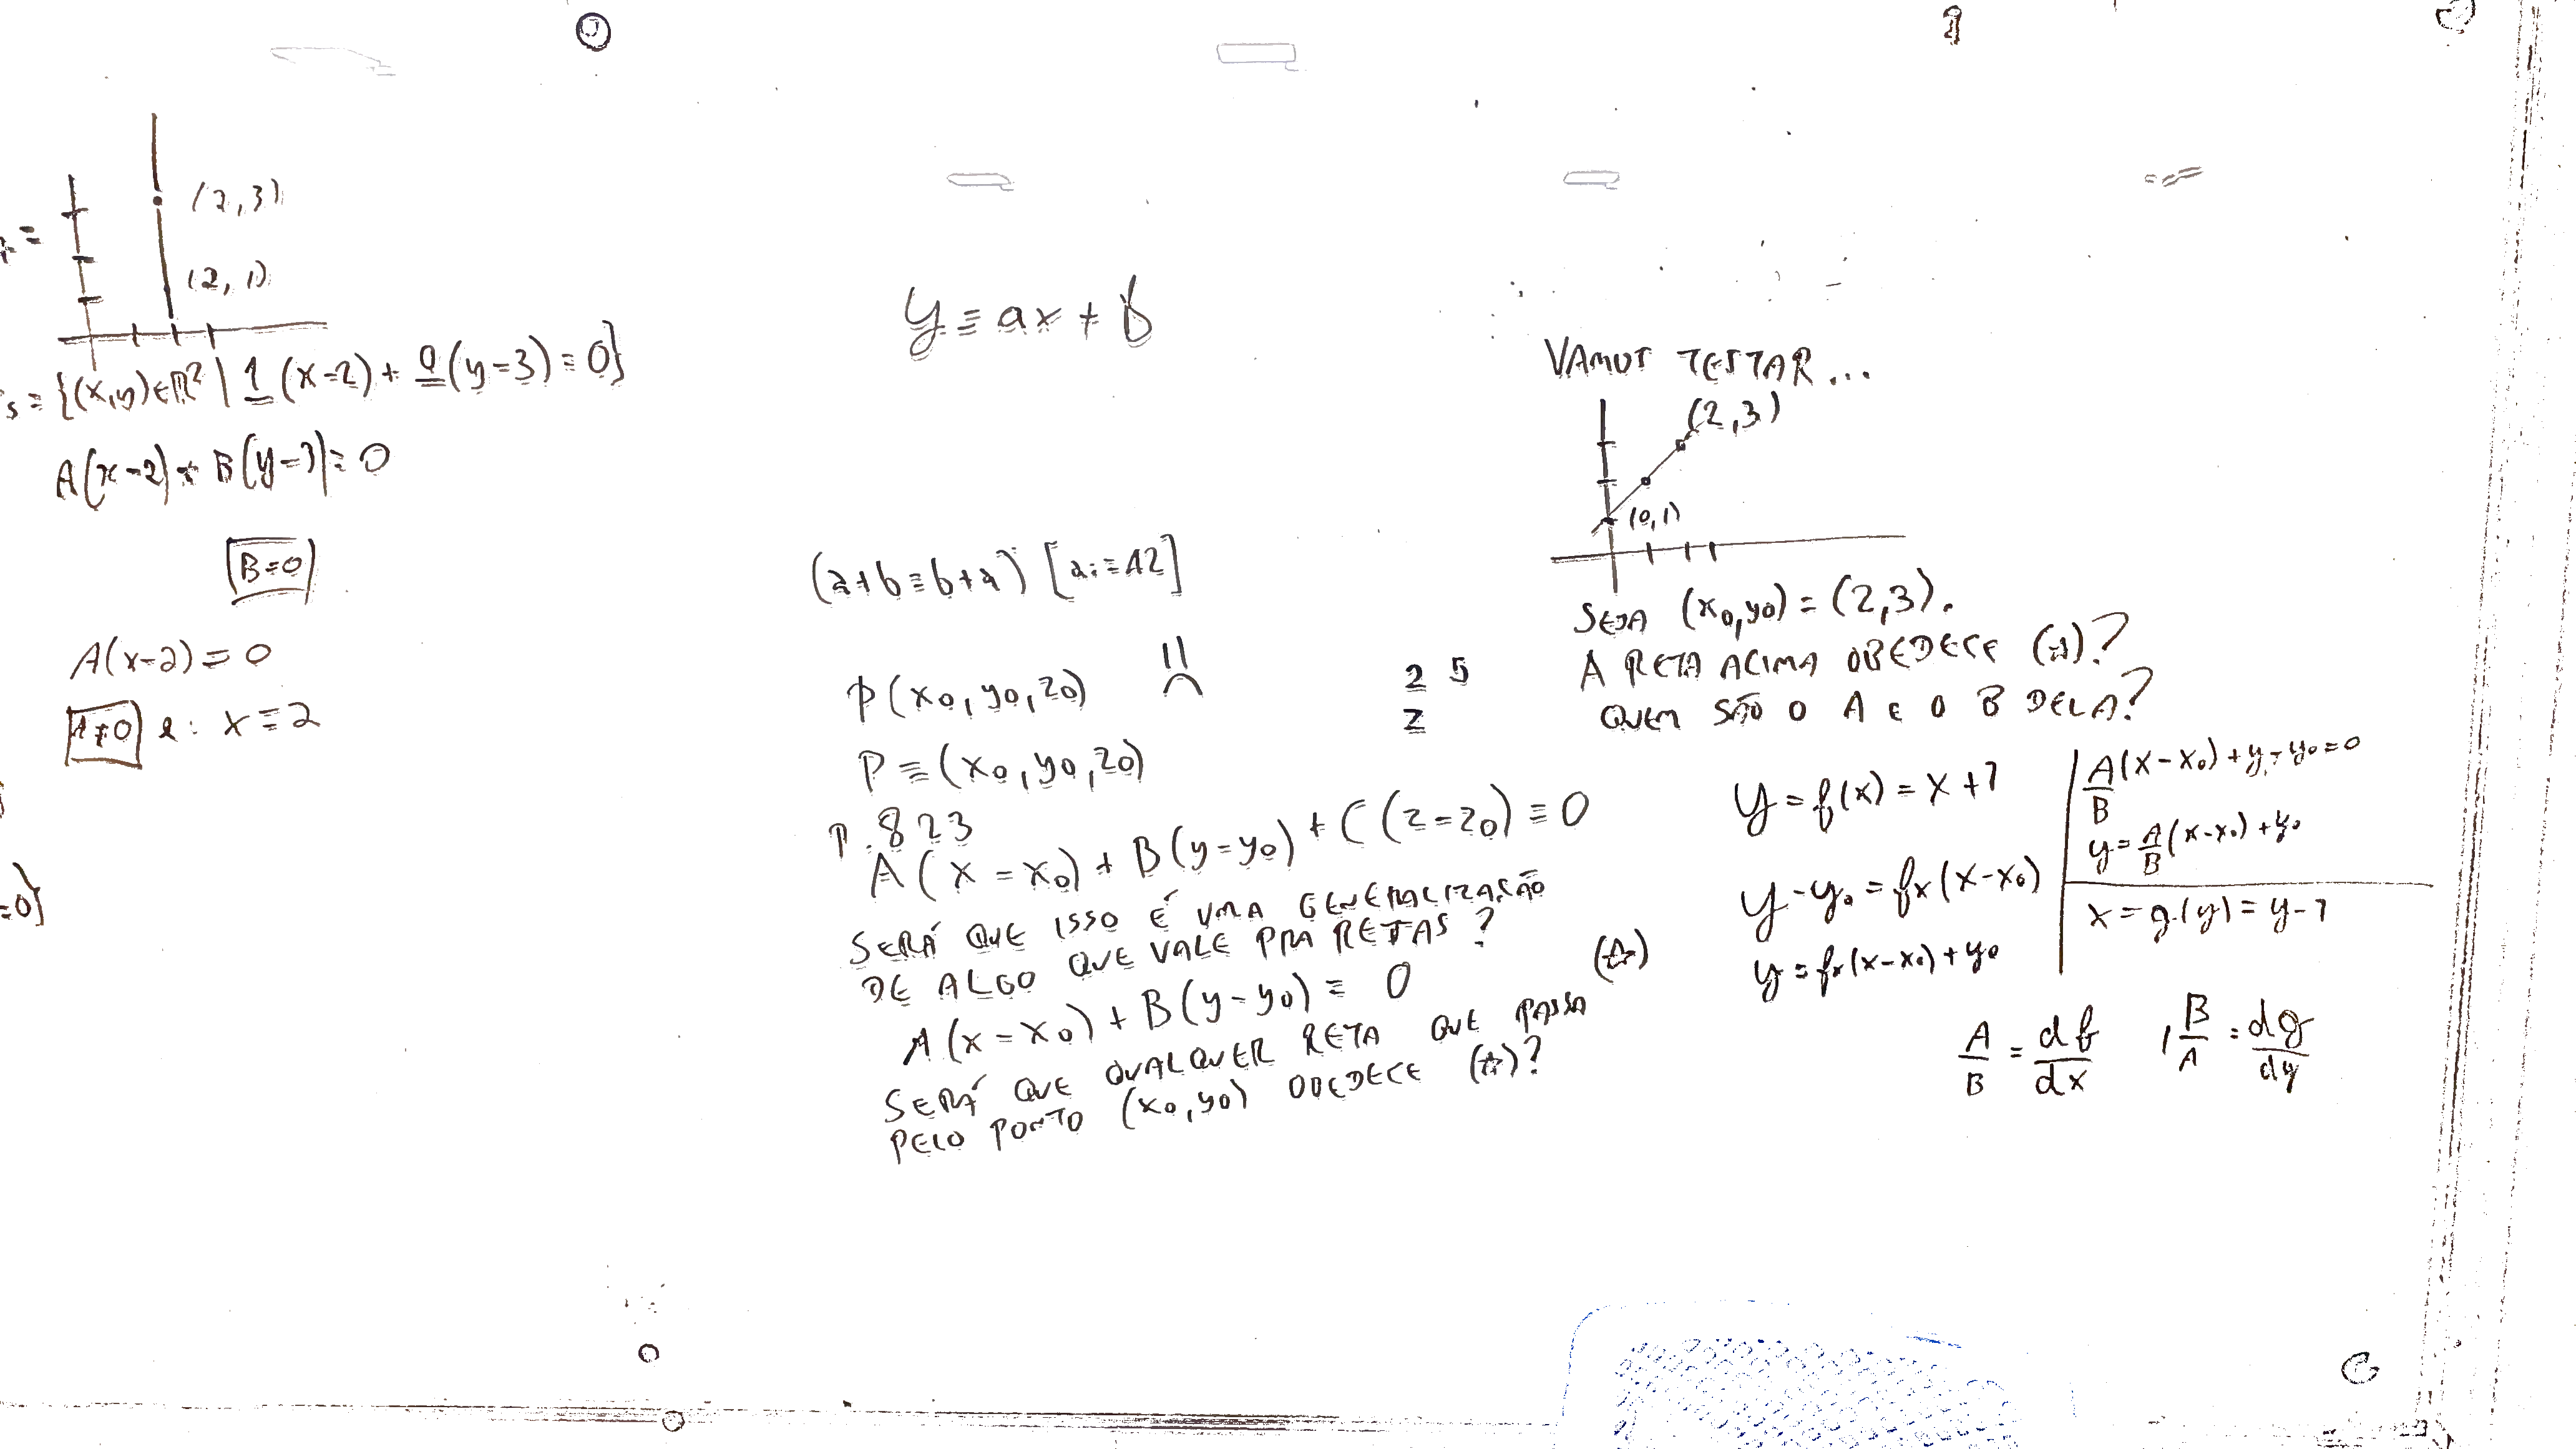 (2,3)
(2,1)
s = {(x,y)∈ℝ² | 1(x-2) + 0(y-3) = 0}
A(x-2) + B(y-3) = 0
B=0
A(x-2) = 0
A≠0 e: x = 2
=0}
y = ax + b
(a+b=b+a) [a:=42]
P(x₀, y₀, z₀) =(
P = (x₀, y₀, z₀)
P. 823
A(x-x₀) + B(y-y₀) + C(z-z₀) = 0
SERÁ QUE ISSO É UMA GENERALIZAÇÃO
DE ALGO QUE VALE PRA RETAS?
A(x-x₀) + B(y-y₀) = 0 (☆)
SERÁ QUE QUALQUER RETA QUE PASSA
PELO PONTO (x₀,y₀) OBEDECE (☆)?
2 5
Z
VAMOS TESTAR...
(2,3)
(0,1)
SEJA (x₀,y₀) = (2,3).
A RETA ACIMA OBEDECE (☆)?
QUEM SÃO O A E O B DELA?
y = f(x) = x+1
y-y₀ = fx(x-x₀)
y = fx(x-x₀) + y₀
A/B (x-x₀) + y-y₀ = 0
y = A/B (x-x₀) + y₀
x = g(y) = y-1
A/B = df/dx , B/A = dg/dy